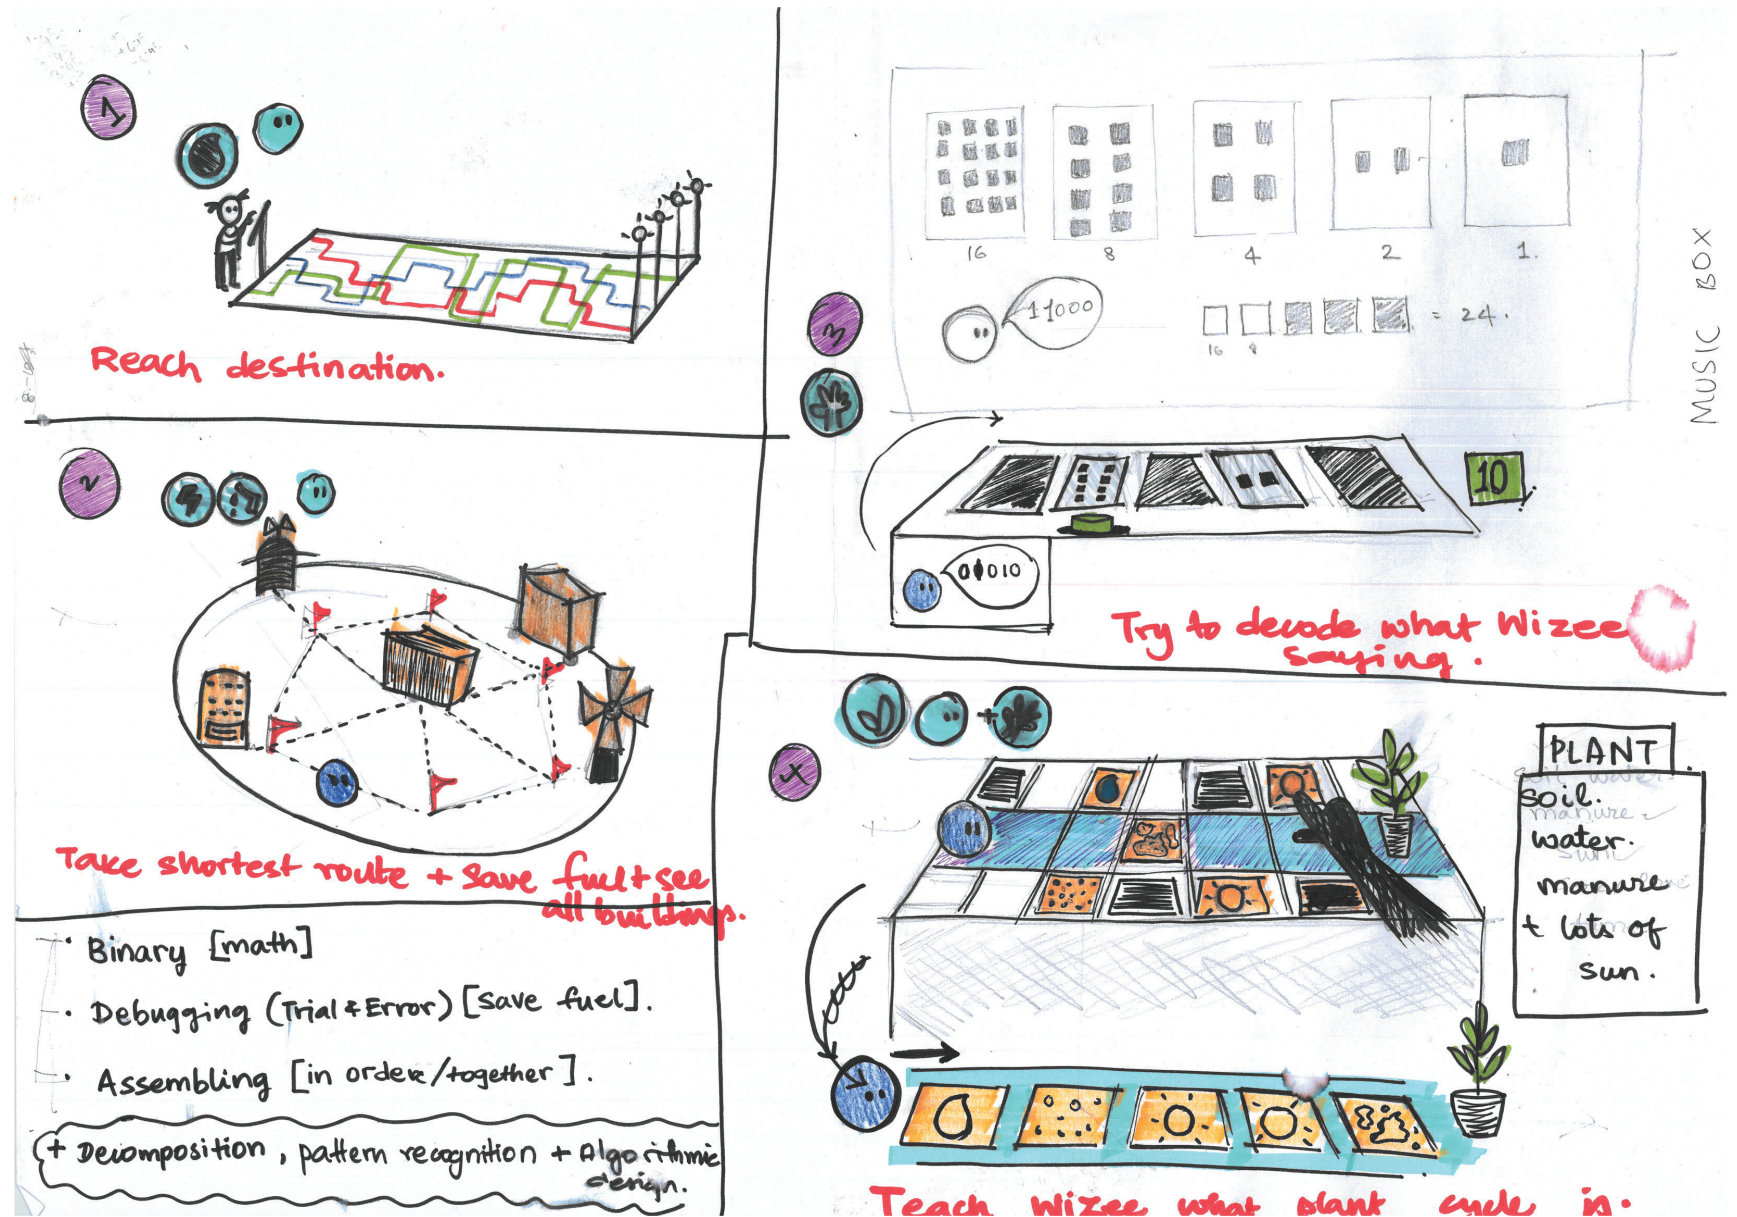 1
Reach destination.
2
Take shortest route + save fuel + see
all buildings.
· Binary [math]
· Debugging (Trial & Error) [save fuel].
· Assembling [in order/together].
+ Decomposition, pattern recognition + Algorithmic
design.
3
16 8 4 2 1.
11000
= 24.
16 8
MUSIC BOX
10
01010
Try to decode what Wizee
saying.
4
PLANT
soil.
manure
water.
manure
+ lots of
sun.
Teach Wizee what plant cycle is.